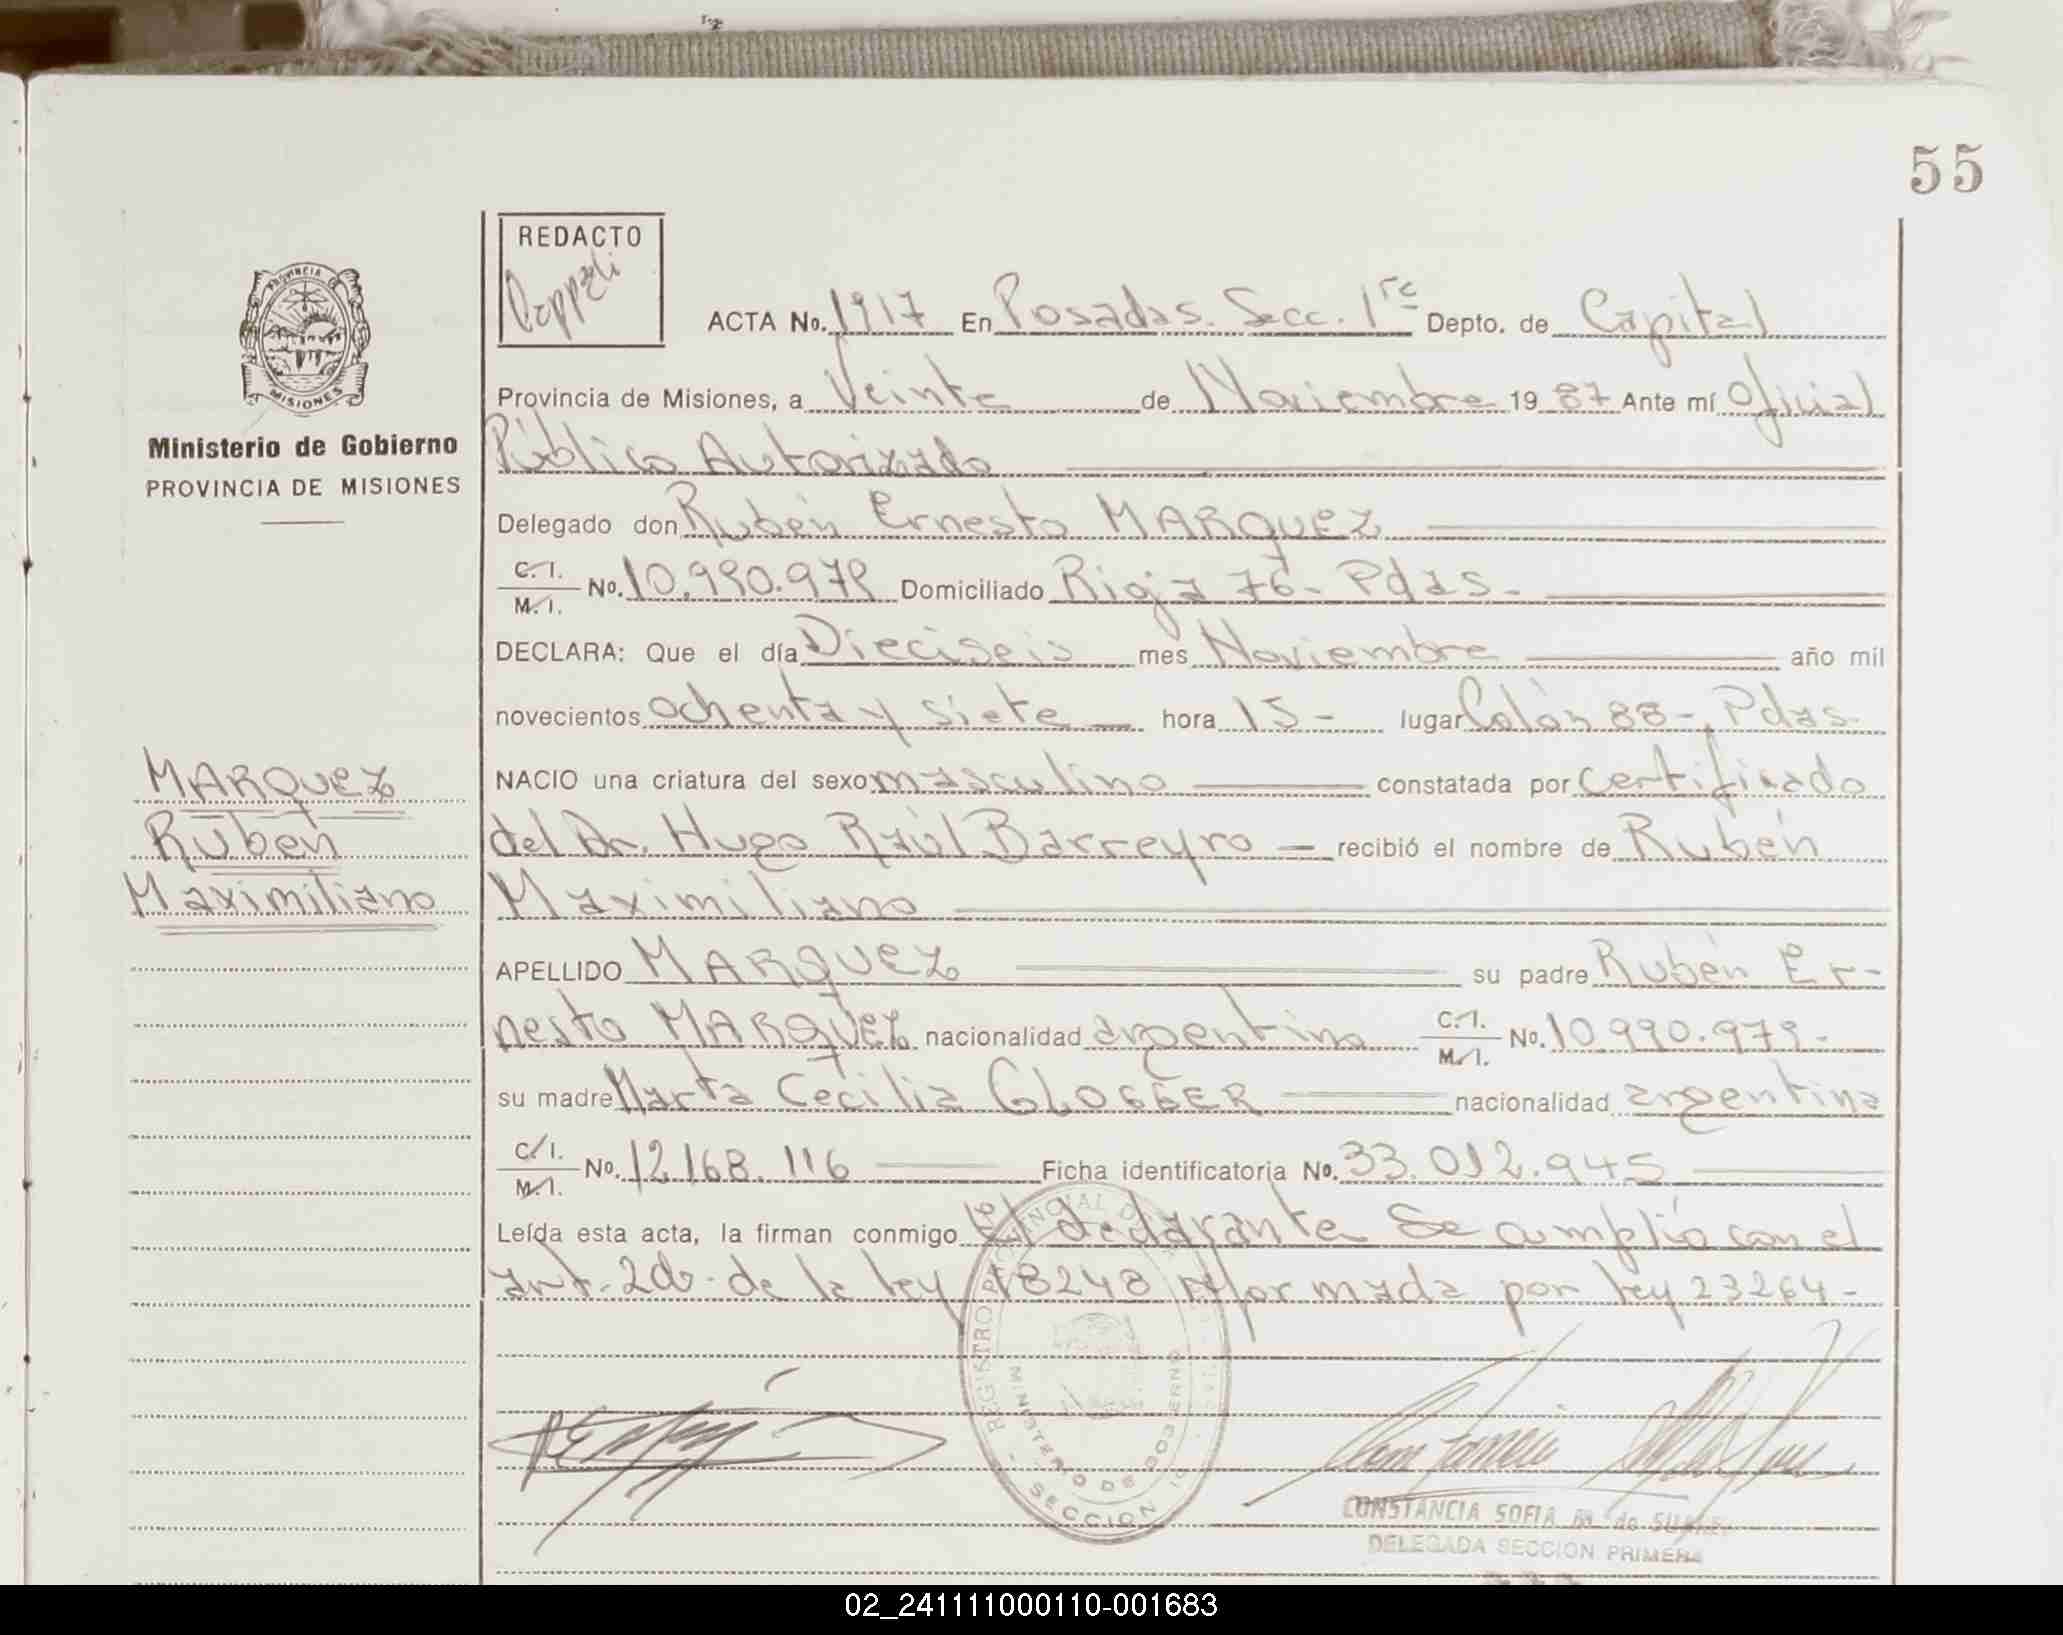 55
REDACTO
PROVINCIA
MISIONES
Ministerio de Gobierno
PROVINCIA DE MISIONES
ACTA No. 1917 En Posadas. Secc. 1ra Depto. de Capital
Provincia de Misiones, a Veinte de Noviembre 19 87 Ante mí Oficial
Público Autorizado
Delegado don Rubén Ernesto MARQUEZ
C.I. M.I. No. 10.990.979 Domiciliado Rioja 76- Pdas-
DECLARA: Que el día Dieciseis mes Noviembre año mil
novecientos ochenta y siete hora 15- lugar Colón 88-, Pdas-
NACIO una criatura del sexo masculino constatada por certificado
del Dr. Hugo Raúl Barreyro recibió el nombre de Rubén
Maximiliano
MARQUEZ
Rubén
Maximiliano
APELLIDO MARQUEZ su padre Rubén Er-
nesto MARQUEZ nacionalidad argentina C.I. M.I. No. 10 990.979-
su madre Marta Cecilia GLOGGER nacionalidad argentina
C.I. M.I. No. 12.168.116 Ficha identificatoria No. 33.012.945
Leída esta acta, la firman conmigo el declarante Se cumplió con el
art. 2do. de la ley 18248 reformada por ley 23264-
MINISTERIO DE GOBIERNO
CONSTANCIA SOFIA de
DELEGADA SECCION PRIMERA
02_241111000110-001683